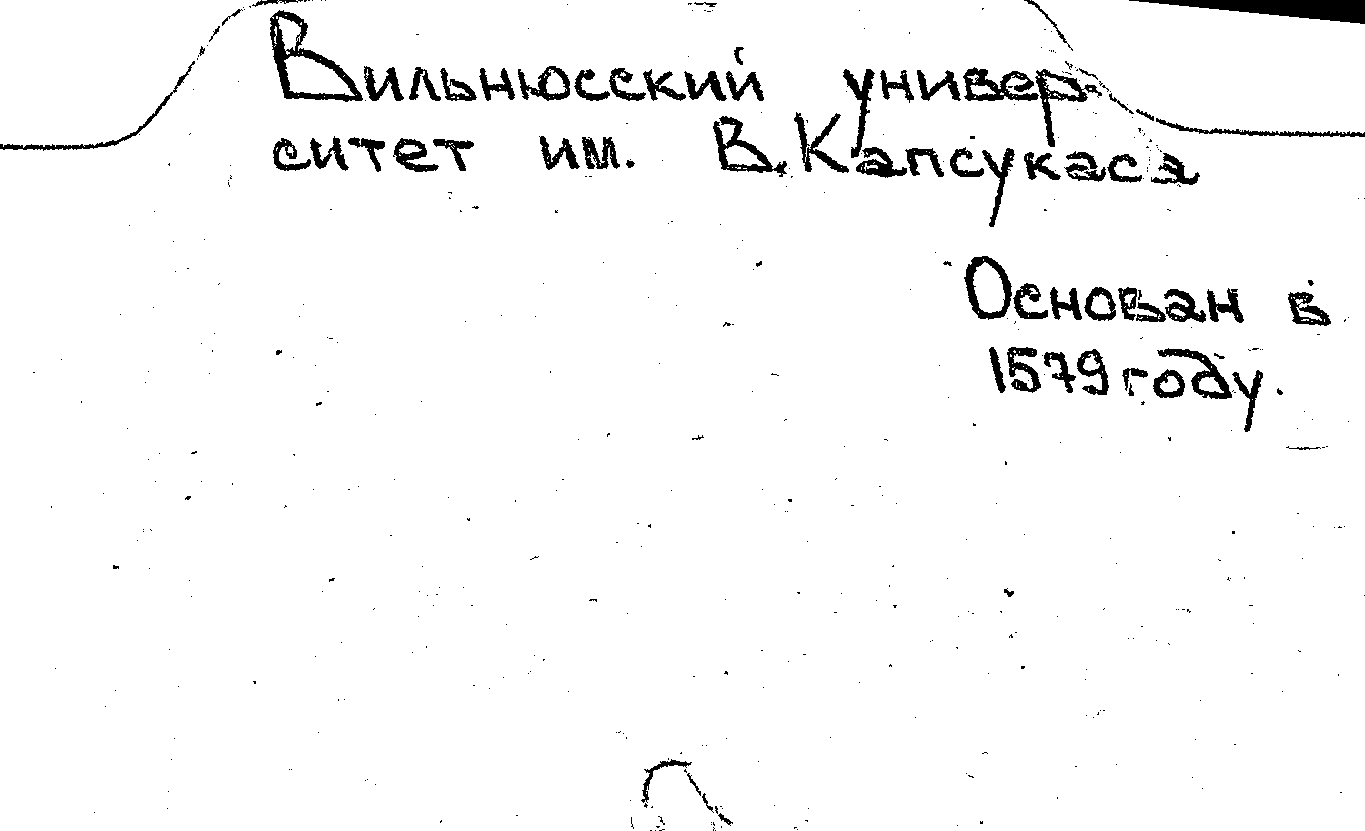 Вильнюсский универ-
ситет им. В. Капсукаса
Основан в
1579 году.